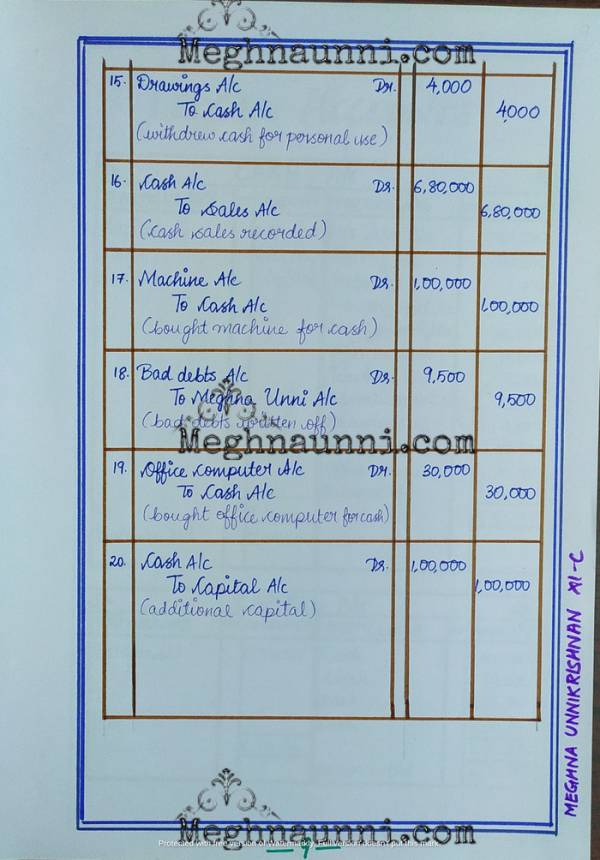 Meghnaunni.com
15. Drawings A/c Dr. 4,000
To Cash A/c 4,000
(withdrew cash for personal use)
16. Cash A/c Dr. 6,80,000
To Sales A/c 6,80,000
(cash sales recorded)
17. Machine A/c Dr. 1,00,000
To Cash A/c 1,00,000
(bought machine for cash)
18. Bad debts A/c Dr. 9,500
To Meghna Unni A/c 9,500
(bad debts written off)
Meghnaunni.com
19. Office computer A/c Dr. 30,000
To Cash A/c 30,000
(bought office computer for cash)
20. Cash A/c Dr. 1,00,000
To Capital A/c 1,00,000
(additional capital)
MEGHNA UNNIKRISHNAN XI-C
Meghnaunni.com
Protected with free version of Watermarkly. Full version doesn't put this mark.